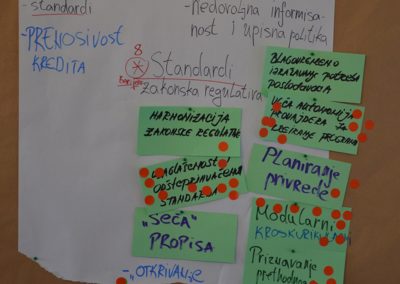 - standardi
- PRENOSIVOST
KREDITA
- Nedovoljna informisa-
nost i upisna politika
8
Standardi
zakonska regulativa
HARMONIZACIJA
ZAKONSKE REGULATIVE
USAGLAŠENOST I
OPŠTEPRIHVAĆENA
STANDARDA
„SEČA“
PROPISA
- „OTKRIVANJE
BLAGOVREMENO
IZRAŽAVANJE POTREBA
POSLODAVACA
VEĆA AUTONOMIJA
PROVAJDERA ZA
KREIRANJE PROGRAMA
Planiranje
privrede
Modularni
KROSKURIKULARNI
Priznavanje
prethodnog